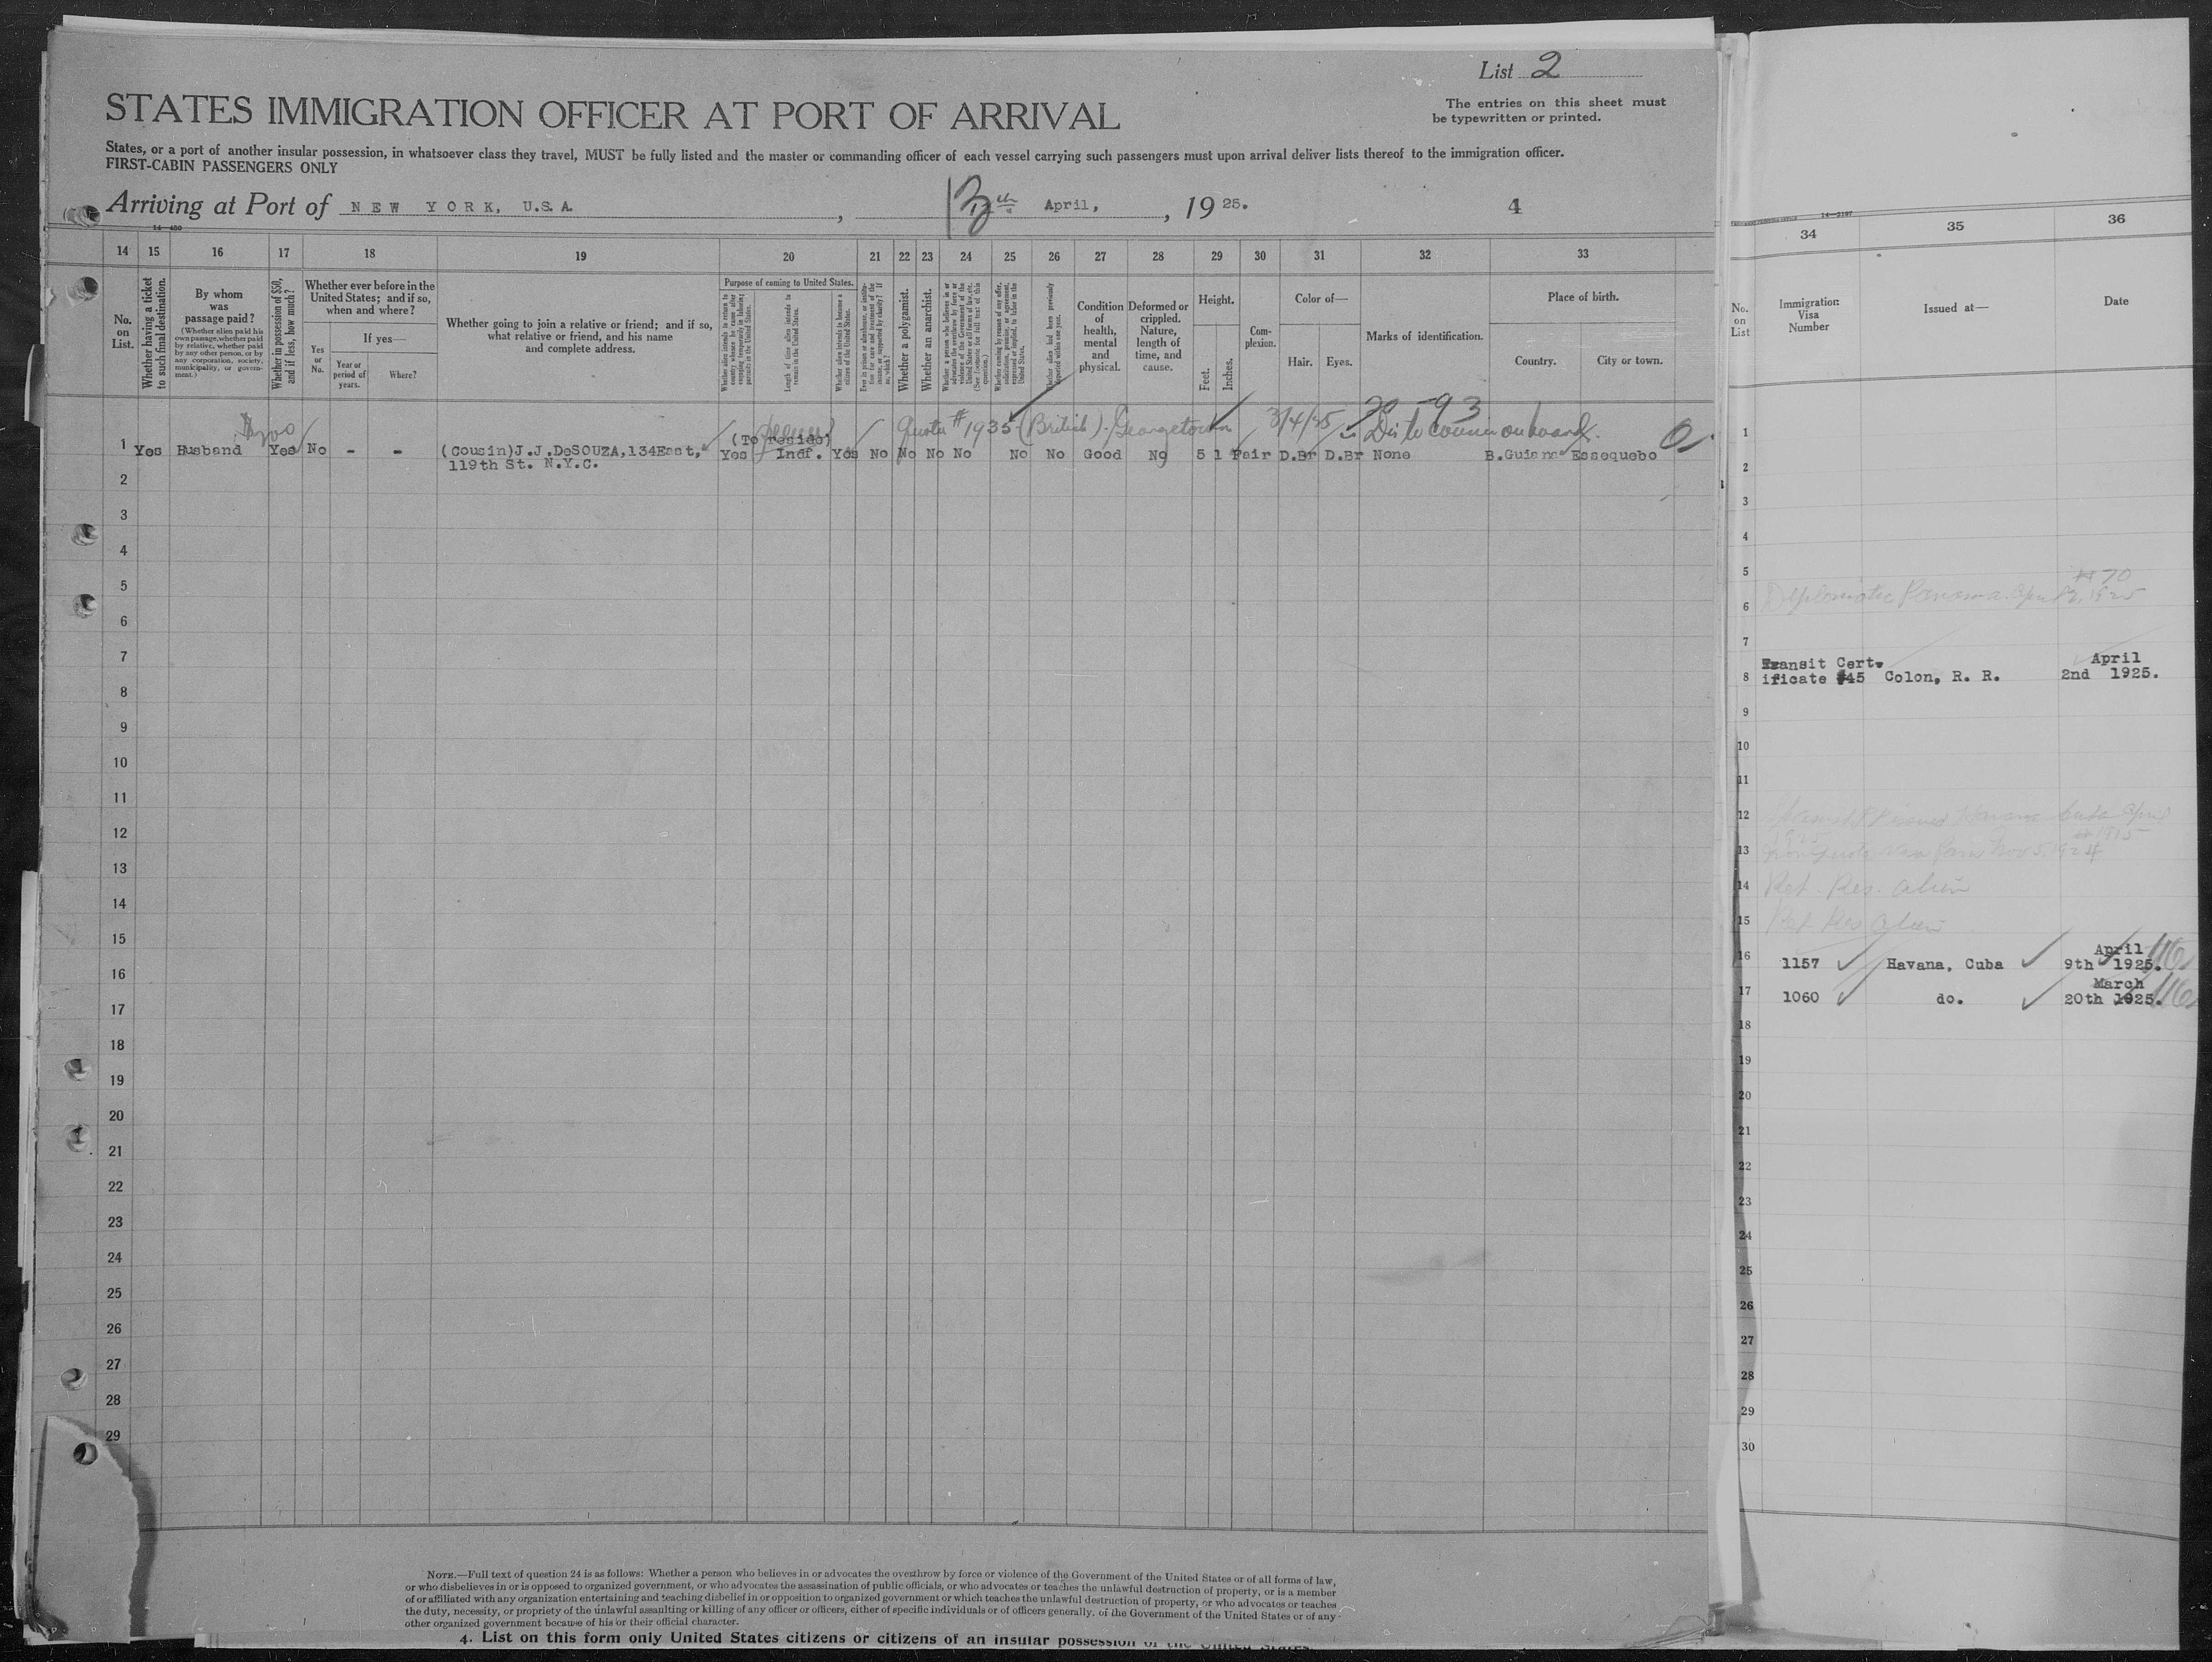 List 2
STATES IMMIGRATION OFFICER AT PORT OF ARRIVAL
The entries on this sheet must
be typewritten or printed.
States, or a port of another insular possession, in whatsoever class they travel, MUST be fully listed and the master or commanding officer of each vessel carrying such passengers must upon arrival deliver lists thereof to the immigration officer.
FIRST-CABIN PASSENGERS ONLY
Arriving at Port of NEW YORK, U.S.A. , 13th April, , 1925. 4
14 15 16 17 18 19 20 21 22 23 24 25 26 27 28 29 30 31 32 33
No. on List.
Whether having a ticket to such final destination.
By whom was passage paid?
(Whether alien paid his own passage, whether paid by relative, whether paid by any other person, or by any corporation, society, municipality, or government.)
Whether in possession of $50, and if less, how much?
Whether ever before in the United States; and if so, when and where?
Yes or No.
If yes—
Year or period of years.
Where?
Whether going to join a relative or friend; and if so, what relative or friend, and his name and complete address.
Purpose of coming to United States.
Whether alien intends to return to country whence he came after engaging temporarily in laboring pursuits in the United States.
Length of time alien intends to remain in the United States.
Whether alien intends to become a citizen of the United States.
Ever in prison or almshouse, or institution for care and treatment of the insane, or supported by charity? If so, which?
Whether a polygamist.
Whether an anarchist.
Whether a person who believes in or advocates the overthrow by force or violence of the Government of the United States or all forms of law, etc. (See footnote for full text of this question.)
Whether coming by reason of any offer, solicitation, promise, or agreement, expressed or implied, to labor in the United States.
Whether alien had been previously deported within one year.
Condition of health, mental and physical.
Deformed or crippled. Nature, length of time, and cause.
Height.
Feet. Inches.
Complexion.
Color of—
Hair. Eyes.
Marks of identification.
Place of birth.
Country. City or town.
$200 Quota #1935 (British) Georgetown 3/4/25 70-93
(To reside)
1 Yes Husband Yes No - - (Cousin)J.J.DeSOUZA,134East, Yes Indf. Yes No No No No No No Good No 5 1 Fair D.Br D.Br None B.Guiana Essequebo
119th St. N.Y.C.
2
3
4
5
6
7
8
9
10
11
12
13
14
15
16
17
18
19
20
21
22
23
24
25
26
27
28
29
NOTE.—Full text of question 24 is as follows: Whether a person who believes in or advocates the overthrow by force or violence of the Government of the United States or of all forms of law,
or who disbelieves in or is opposed to organized government, or who advocates the assassination of public officials, or who advocates or teaches the unlawful destruction of property, or is a member
of or affiliated with any organization entertaining and teaching disbelief in or opposition to organized government or which teaches the unlawful destruction of property, or who advocates or teaches
the duty, necessity, or propriety of the unlawful assaulting or killing of any officer or officers, either of specific individuals or of officers generally, of the Government of the United States or of any
other organized government because of his or their official character.
4. List on this form only United States citizens or citizens of an insular possession of the United States.
14—2197
34 35 36
No. on List
Immigration Visa Number
Issued at—
Date
1
2
3
4
5
#70
6 Diplomatic Panama April 2, 1925
7
Transit Cert. April
8 ificate #45 Colon, R. R. 2nd 1925.
9
10
11
12
13
14 Ret. Res. alien
15 Ret Res alien
April
16 1157 Havana, Cuba 9th 1925.
March
17 1060 do. 20th 1925.
18
19
20
21
22
23
24
25
26
27
28
29
30